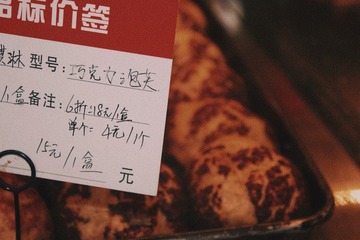 标价签
型号:巧克力泡芙
1盒备注:6折:18元/盒
单个:4元/1个
15元/1盒 元